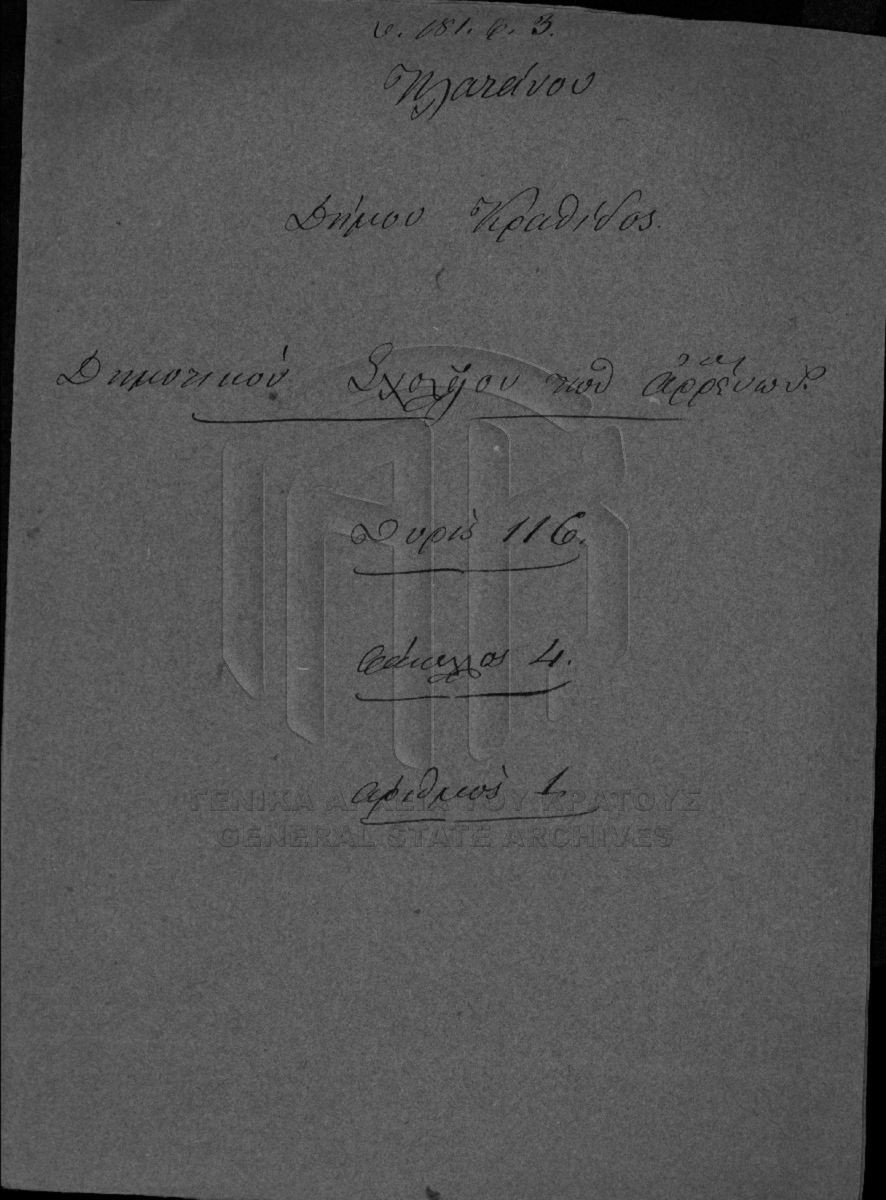 φ. 181. β. 3.
Πλατάνου
Δήμου Κραθίδος.
Δημοτικόν Σχολεῖον τῶν ἀρρένων.
Θυρὶς 116.
Φάκελλος 4.
ἀριθμὸς 1
ΓΕΝΙΚΑ ΑΡΧΕΙΑ ΤΟΥ ΚΡΑΤΟΥΣ
GENERAL STATE ARCHIVES